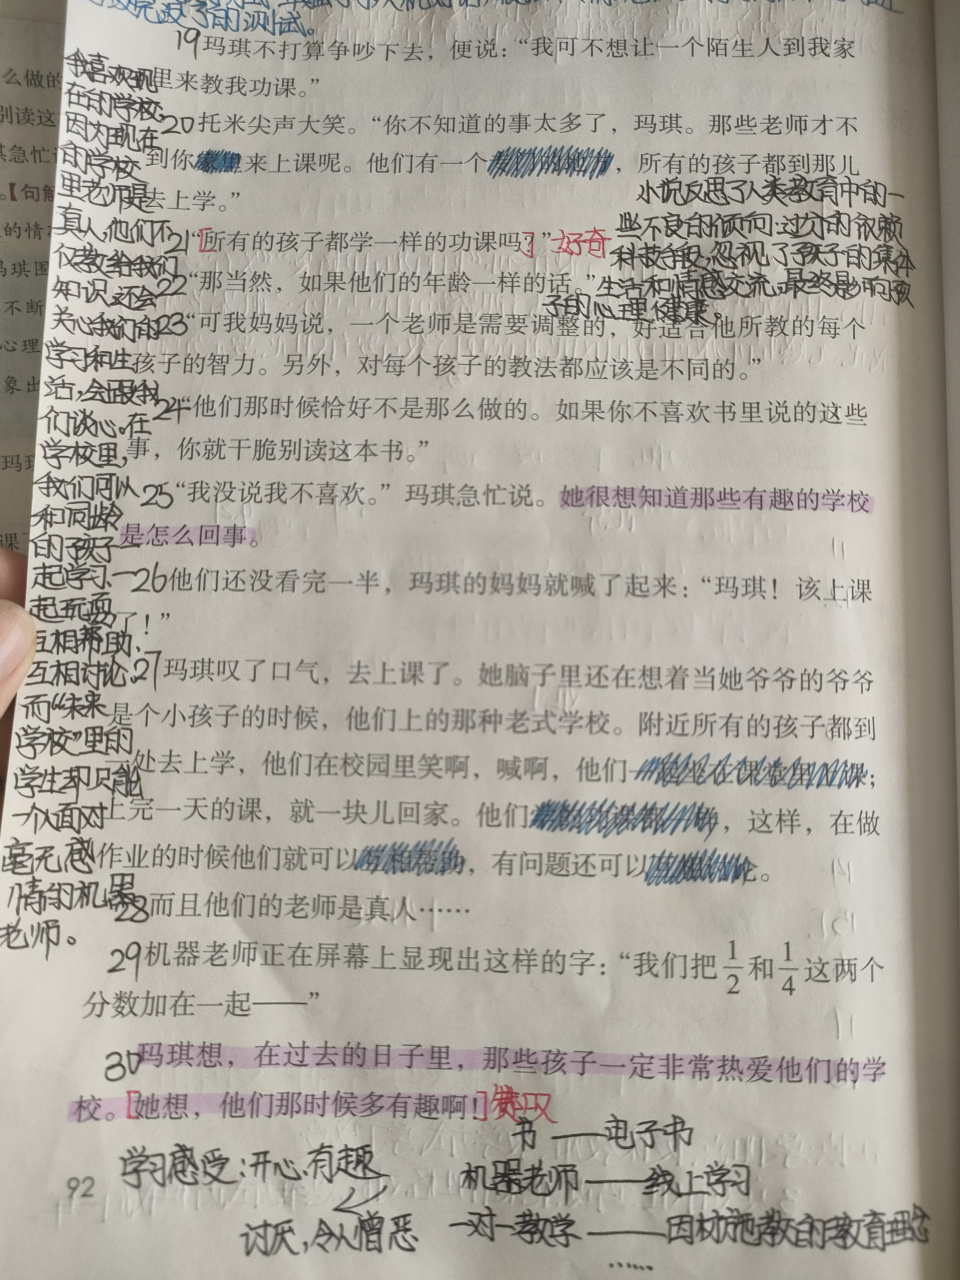 的测试。
19玛琪不打算争吵下去，便说：“我可不想让一个陌生人到我家
里来教我功课。”
20托米尖声大笑。“你不知道的事太多了，玛琪。那些老师才不
到你家里来上课呢。他们有一个，所有的孩子都到那儿
去上学。”
21“[所有的孩子都学一样的功课吗？]” 好奇
22“那当然，如果他们的年龄一样的话。”
23“可我妈妈说，一个老师是需要调整的，好适合他所教的每个
孩子的智力。另外，对每个孩子的教法都应该是不同的。”
24“他们那时候恰好不是那么做的。如果你不喜欢书里说的这些
事，你就干脆别读这本书。”
25“我没说我不喜欢。”玛琪急忙说。她很想知道那些有趣的学校
是怎么回事。
26他们还没看完一半，玛琪的妈妈就喊了起来：“玛琪！该上课
了！”
27玛琪叹了口气，去上课了。她脑子里还在想着当她爷爷的爷爷
是个小孩子的时候，他们上的那种老式学校。附近所有的孩子都到
一处去上学，他们在校园里笑啊，喊啊，他们一起坐在课堂里上课；
上完一天的课，就一块儿回家。他们，这样，在做
作业的时候他们就可以互相帮助，有问题还可以互相讨论。
28而且他们的老师是真人……
29机器老师正在屏幕上显现出这样的字：“我们把1/2和1/4这两个
分数加在一起——”
30玛琪想，在过去的日子里，那些孩子一定非常热爱他们的学
校。[她想，他们那时候多有趣啊！]
92
我喜欢现
在的学校，
因为现在
的学校
里老师是
真人，他们不
仅教给我们
知识，还会
关心我们的
学习和生
活，会跟我
们谈心。在
学校里，
我们可以
和同龄
的孩子一
起学习、一
起玩耍、
互相帮助、
互相讨论。
而“未来
学校”里的
学生却只能
一个人面对
毫无感
情的机器
老师。
小说反思了人类教育中的一
些不良的倾向：过力的依赖
科技手段，忽视了孩子的集体
生活和情感交流，最终影响孩
子的心理健康。
学习感受：开心、有趣
讨厌，令人憎恶
书——电子书
机器老师——线上学习
一对一教学——因材施教的教育理念
……